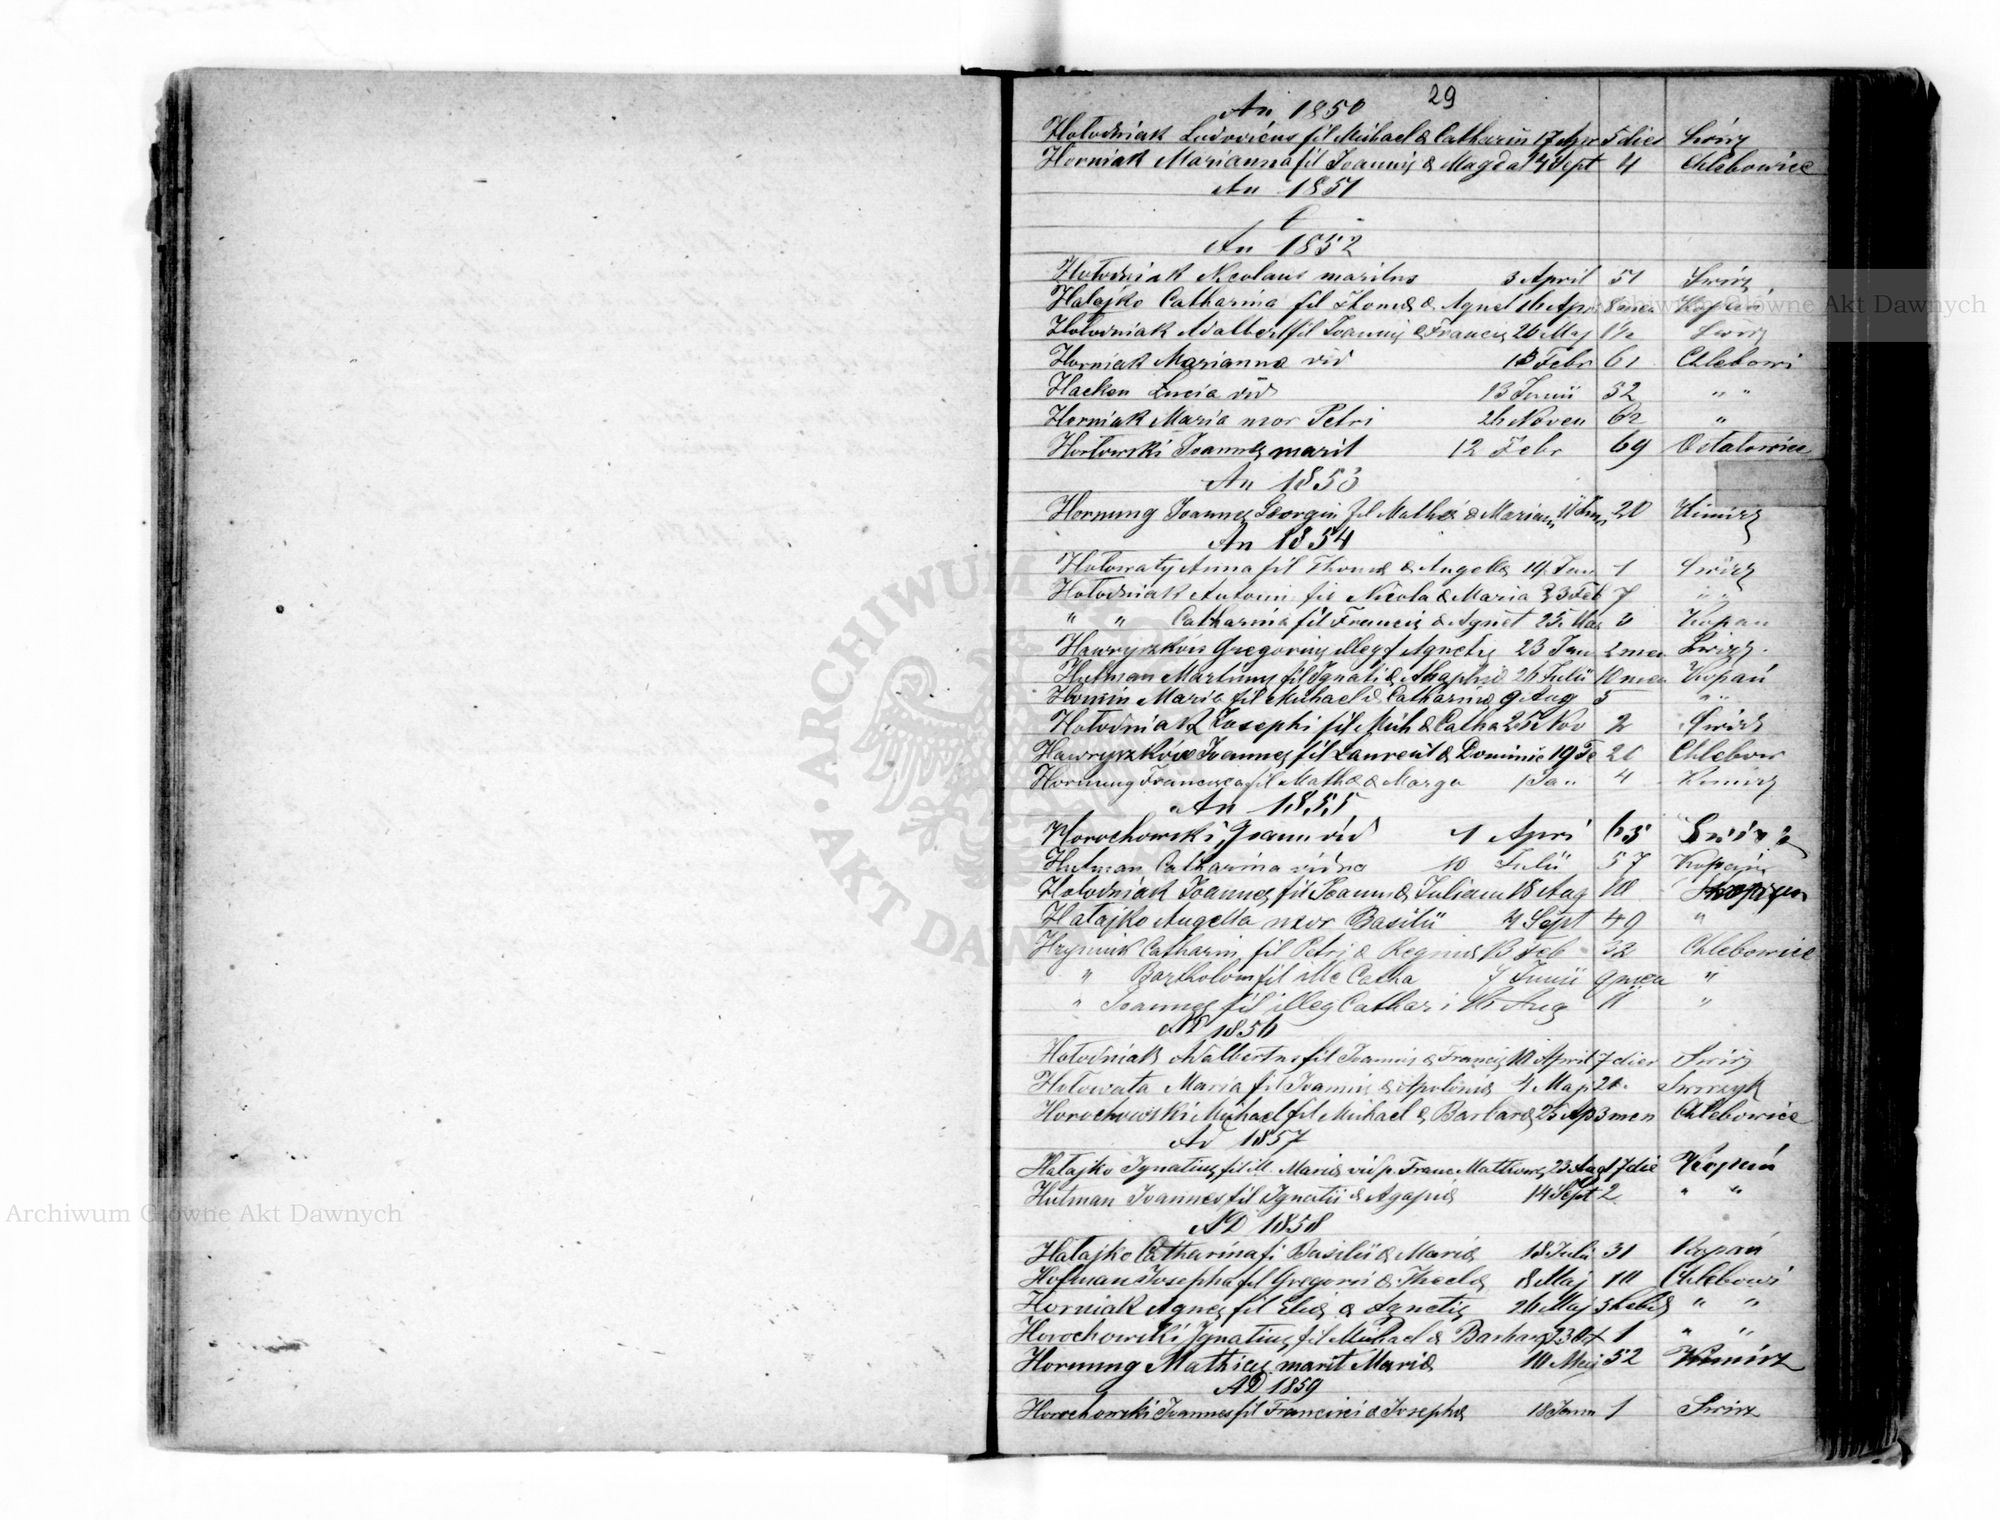 29
An 1850
Hołodniak Ludovicus fil Michael & Catharin 17 Apr 5 dies Swirz
Horniak Marianna fil Joannis & Magda 14 Sept 4 Chlebowice
An 1851
An 1852
Hołodniak Nicolaus maritus 3 April 51 Swirz
Hałajko Catharina fil Thoma & Agnet 16 Apr 8 men Kopań
Hołodniak Adalbert fil Joannis & Francis 26 Maj 1½ Swirz
Horniak Marianna vid 13 Febr 61 Chlebowi
Hacken Lucia vid 13 Junii 32 " "
Horniak Maria uxor Petri 26 Noven 62 "
Horłowski Joannes marit 12 Febr 69 Ostałowice
An 1853
Hornung Joannes Georgiu fil Mathei & Mariann 11 20 Kimirz
An 1854
Hołowaty Anna fil Thoma & Angella 19 Jan 1 Swirz
Hołodniak Antoni fil Nicola & Maria 23 Feb 7 " "
" " Catharina fil Francis & Agnet 25 Mar 3 Kopan
Hawryszków Gregorius illeg f Agnetis 23 Jan 2 men Swirz
Hutman Martinus fil Ignatii & Agaphia 26 Julii 10 men Kopań
Maria fil Michael & Catharina 9 Aug 5 " "
Hołodniak Josephi fil Mich & Catha 25 Nov 2 Swirz
Hawryszków Joannes fil Laurent & Dominic 19 Fe 20 Chlebow
Hornung Francisca fil Math & Marga 1 Jan 4 Kimirz
An 1855
Horochowski Joann vid 1 Apri 63 Swirz
Hutman Catharina vidua 10 Julii 57 Kopań
Hołodniak Joannes fil Joann & Juliann 18 Aug 10 Kopań
Hałajko Angella uxor Basilii 4 Sept 49 "
Hryniuk Catharin fil Petri & Regina 13 Feb 32 Chlebowice
" Bartholom fil ille Catha 7 Junii 9 men "
" Joannes fil illeg Cathari 16 Aug 11 "
AD 1856
Hołodniak Adalbertus fil Joannis & Francis 10 April 7 dier Swirz
Hołowata Maria fil Joannis & Apolonia 4 Maj 2 Swirzyk
Horochowski Michael fil Michael & Barbara 25 Ap 3 men Chlebowice
AD 1857
Hałajko Ignatius fil ill. Maria vid p. Franc Matthow 23 Aug 17 die Kopań
Hutman Joannes fil Ignatii & Agapia 14 Sept 2 " "
AD 1858
Hałajko Catharina fi Basilii & Maria 18 Julii 31 Kopań
Hofman Josepha fil Gregori & Thecla 8 Maj 10 Chlebowi
Horniak Agnes fil Elia & Agnetis 26 Maj 3 hebd " "
Horochowski Ignatius fil Michael & Barbara 23 Oct 1 " "
Hornung Mathias marit Maria 10 Maj 52 Kimirz
AD 1859
Horochowski Joannes fil Francisci & Josepha 18 Janu 1 Swirz
Archiwum Główne Akt Dawnych
Archiwum Główne Akt Dawnych